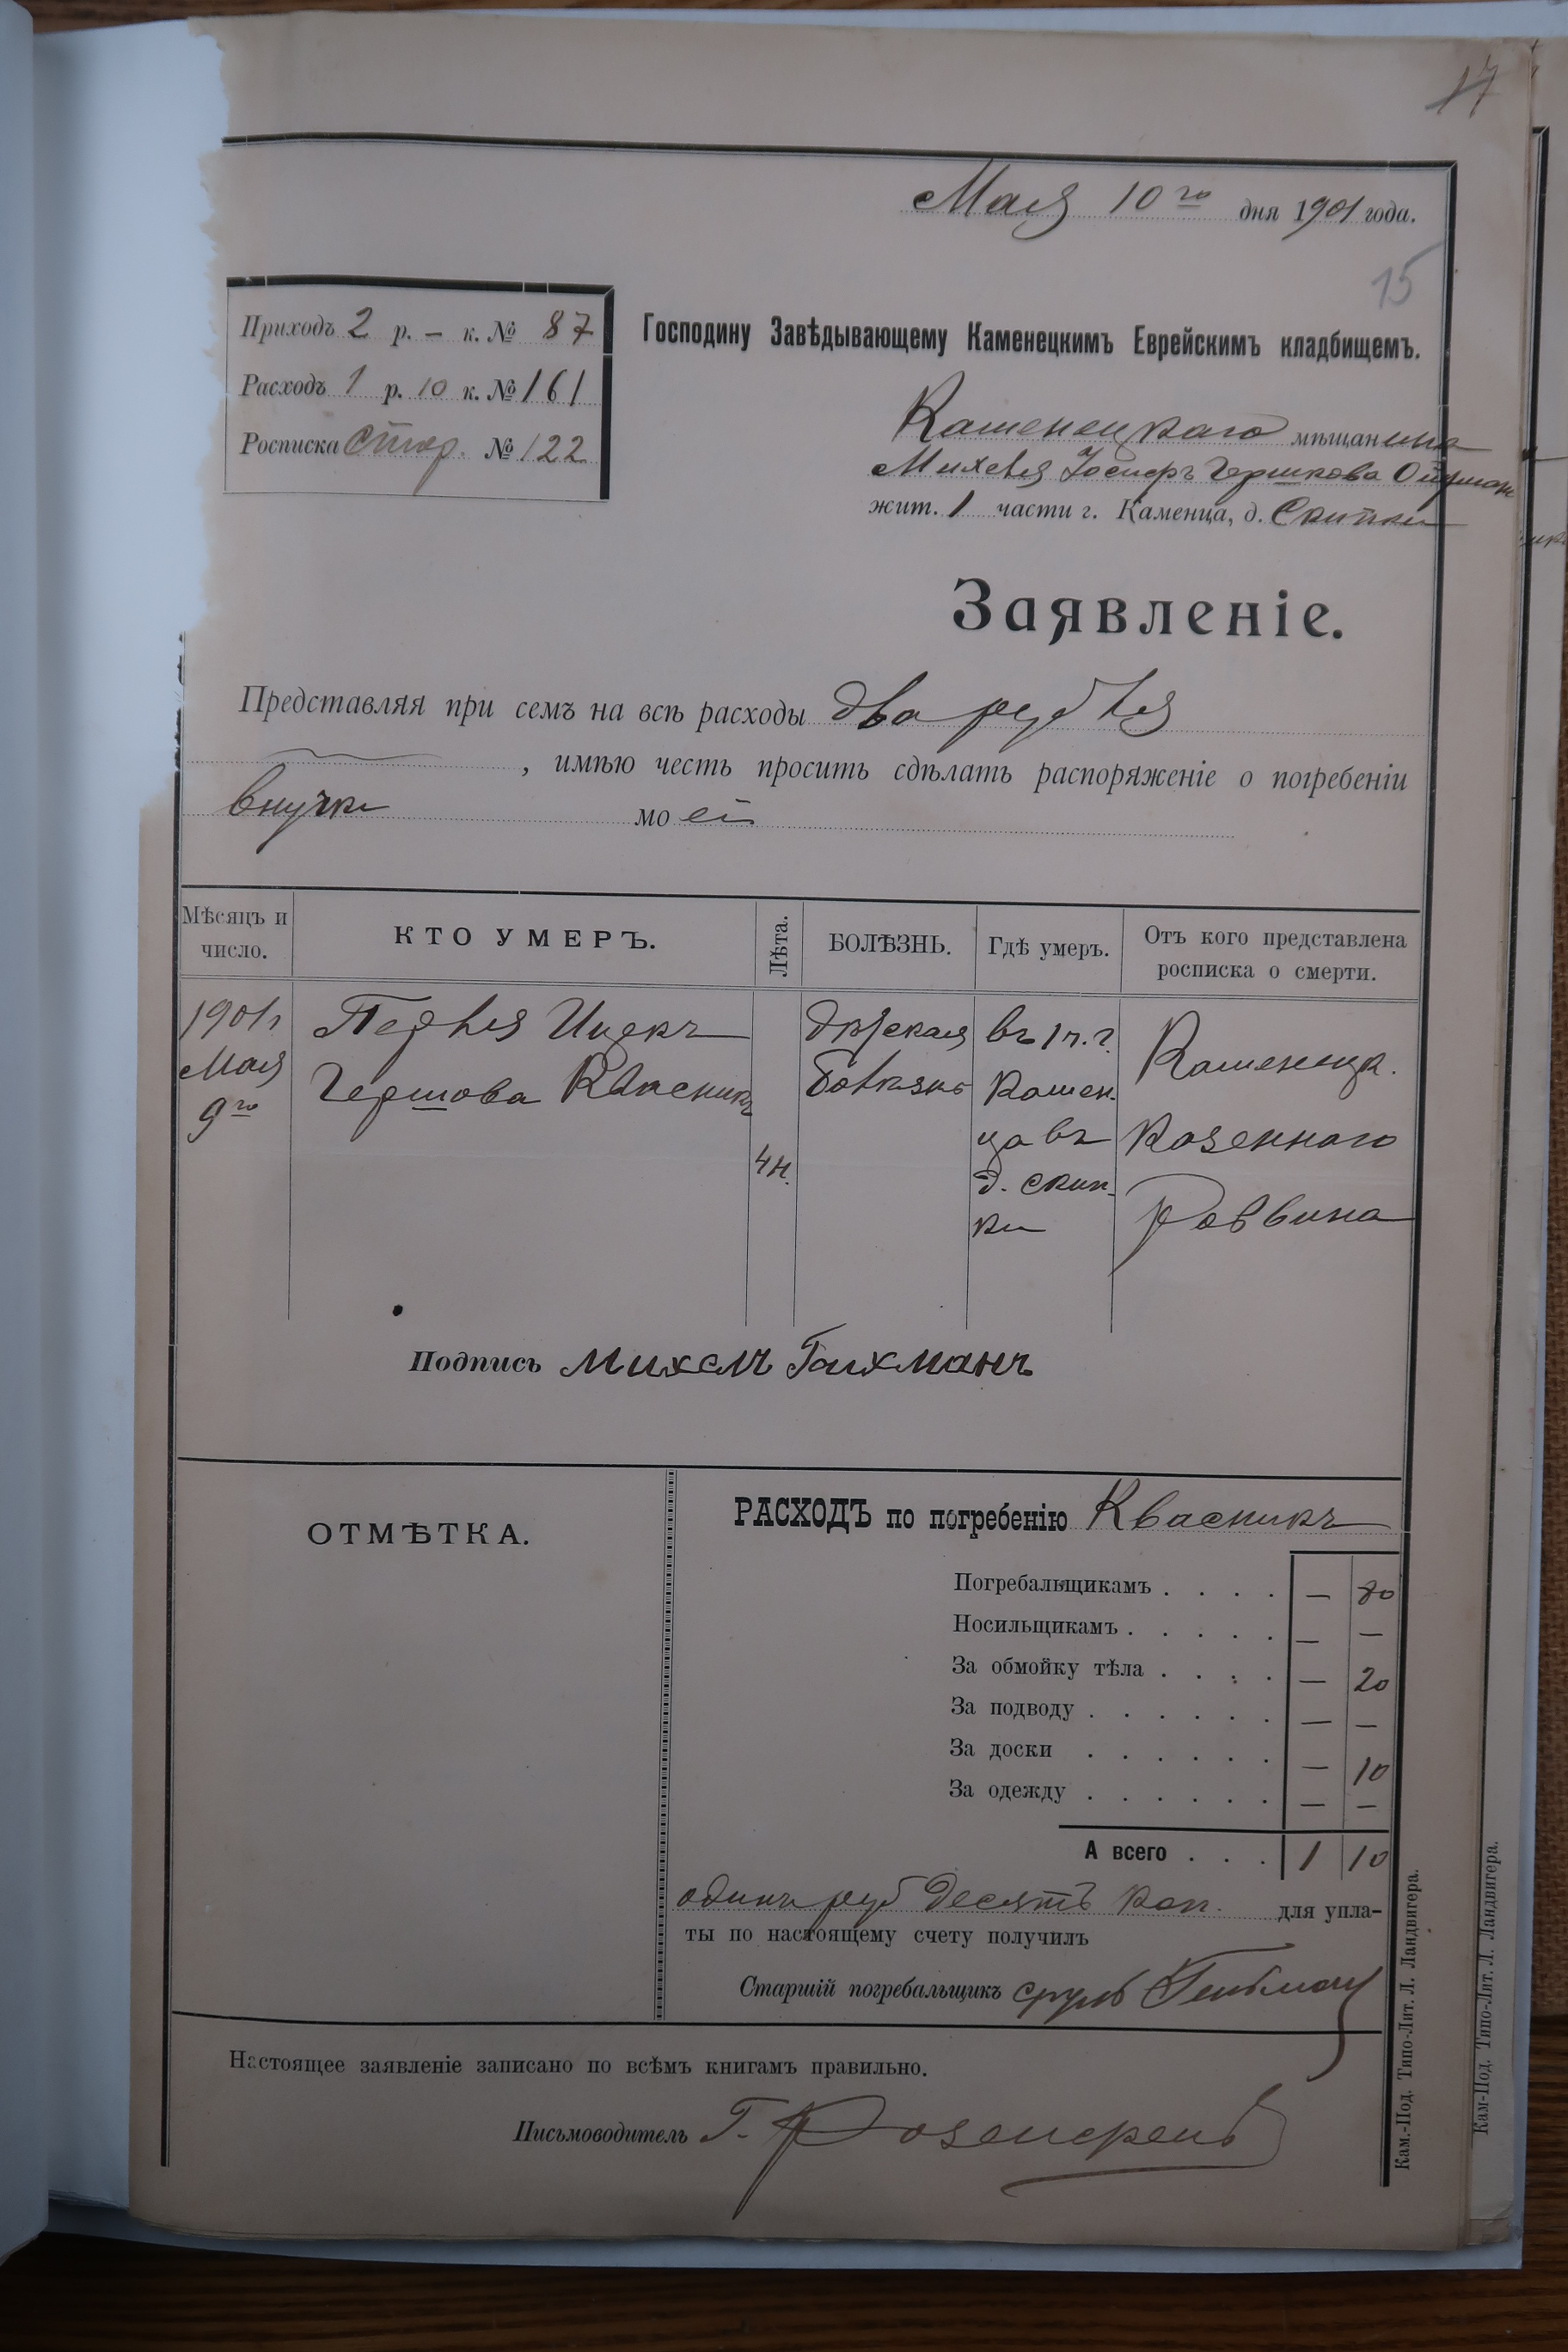 17
Мая 10го дня 1901 года.
15
Приходъ 2 р. – к. № 87
Расходъ 1 р. 10 к. № 161
Росписка стар. № 122
Господину Завѣдывающему Каменецкимъ Еврейскимъ кладбищемъ.
Каменецкаго мѣщанина
Михеля Іосифъ Гершкова
жит. 1 части г. Каменца, д. Скипки
Заявленіе.
Представляя при семъ на всѣ расходы два рубля
, имѣю честь просить сдѣлать распоряженіе о погребеніи
внучки моей
Мѣсяцъ и число.
КТО УМЕРЪ.
Лѣта.
БОЛѢЗНЬ.
Гдѣ умеръ.
Отъ кого представлена росписка о смерти.
1901 г
Мая
9го
Перля Ицекъ
Гершова Квасникъ
4 н.
дѣтская
болѣзнь
въ 1 ч. г.
Камен-
ца въ
д. Скип-
ки
Каменец.
Казеннаго
Раввина
Подпись Михель Гаихманъ
ОТМѢТКА.
РАСХОДЪ по погребенію Квасникъ
Погребальщикамъ . . . . — 80
Носильщикамъ . . . . . — —
За обмойку тѣла . . . . — 20
За подводу . . . . . . — —
За доски . . . . . . — 10
За одежду . . . . . . — —
А всего . . . 1 10
одинъ руб десять коп. для упла-
ты по настоящему счету получилъ
Старшій погребальщикъ Сруль
Настоящее заявленіе записано по всѣмъ книгамъ правильно.
Письмоводитель Г.
Кам.-Под. Типо-Лит. Л. Ландвигера.
Кам-Под. Типо-Лит. Л. Ландвигера.